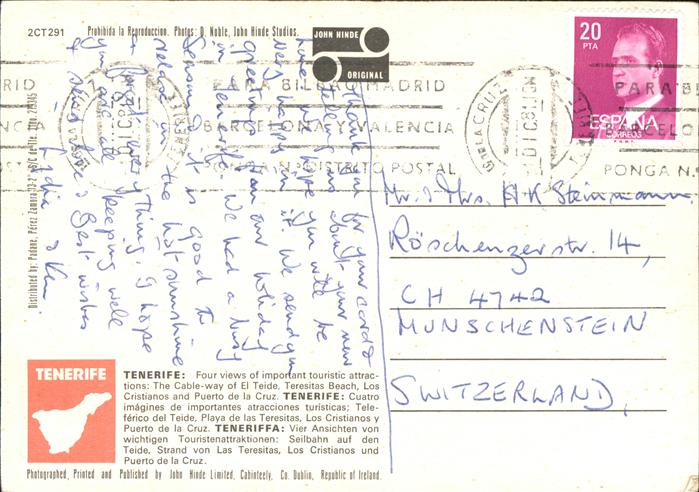 2CT291
Prohibida la Reproduccion. Photos: D. Noble, John Hinde Studios.
JOHN HINDE
ORIGINAL
20
PTA
ESPAÑA
CORREOS
PARA BILBAO, MADRID
BARCELONA Y VALENCIA
PONGA N.º DISTRITO POSTAL
STA CRUZ
TENERIFE
PARA B
BARCELO
PONGA N.º
Thank you for your card &
telling us about your new
home. We hope you will be
very happy in it. We send you
greetings from our holiday
in Tenerife. We had a busy
Season & it is good to
relax in the hot sunshine
& forget everything. I hope
you are all keeping well
& send love & Best wishes
Lydia & Ken
Mr. & Mrs. H K Steinmann
Röschenzerstr. 14,
CH 4742
MUNSCHENSTEIN
SWITZERLAND,
Distributed by: Padane, Pérez Zamora
TENERIFE
TENERIFE: Four views of important touristic attrac-
tions: The Cable-way of El Teide, Teresitas Beach, Los
Cristianos and Puerto de la Cruz. TENERIFE: Cuatro
imágines de importantes atracciones turísticas; Tele-
férico del Teide, Playa de las Teresitas, Los Cristianos y
Puerto de la Cruz. TENERIFFA: Vier Ansichten von
wichtigen Touristenattraktionen: Seilbahn auf den
Teide, Strand von Las Teresitas, Los Cristianos und
Puerto de la Cruz.
Photographed, Printed and Published by John Hinde Limited, Cabinteely, Co. Dublin, Republic of Ireland.